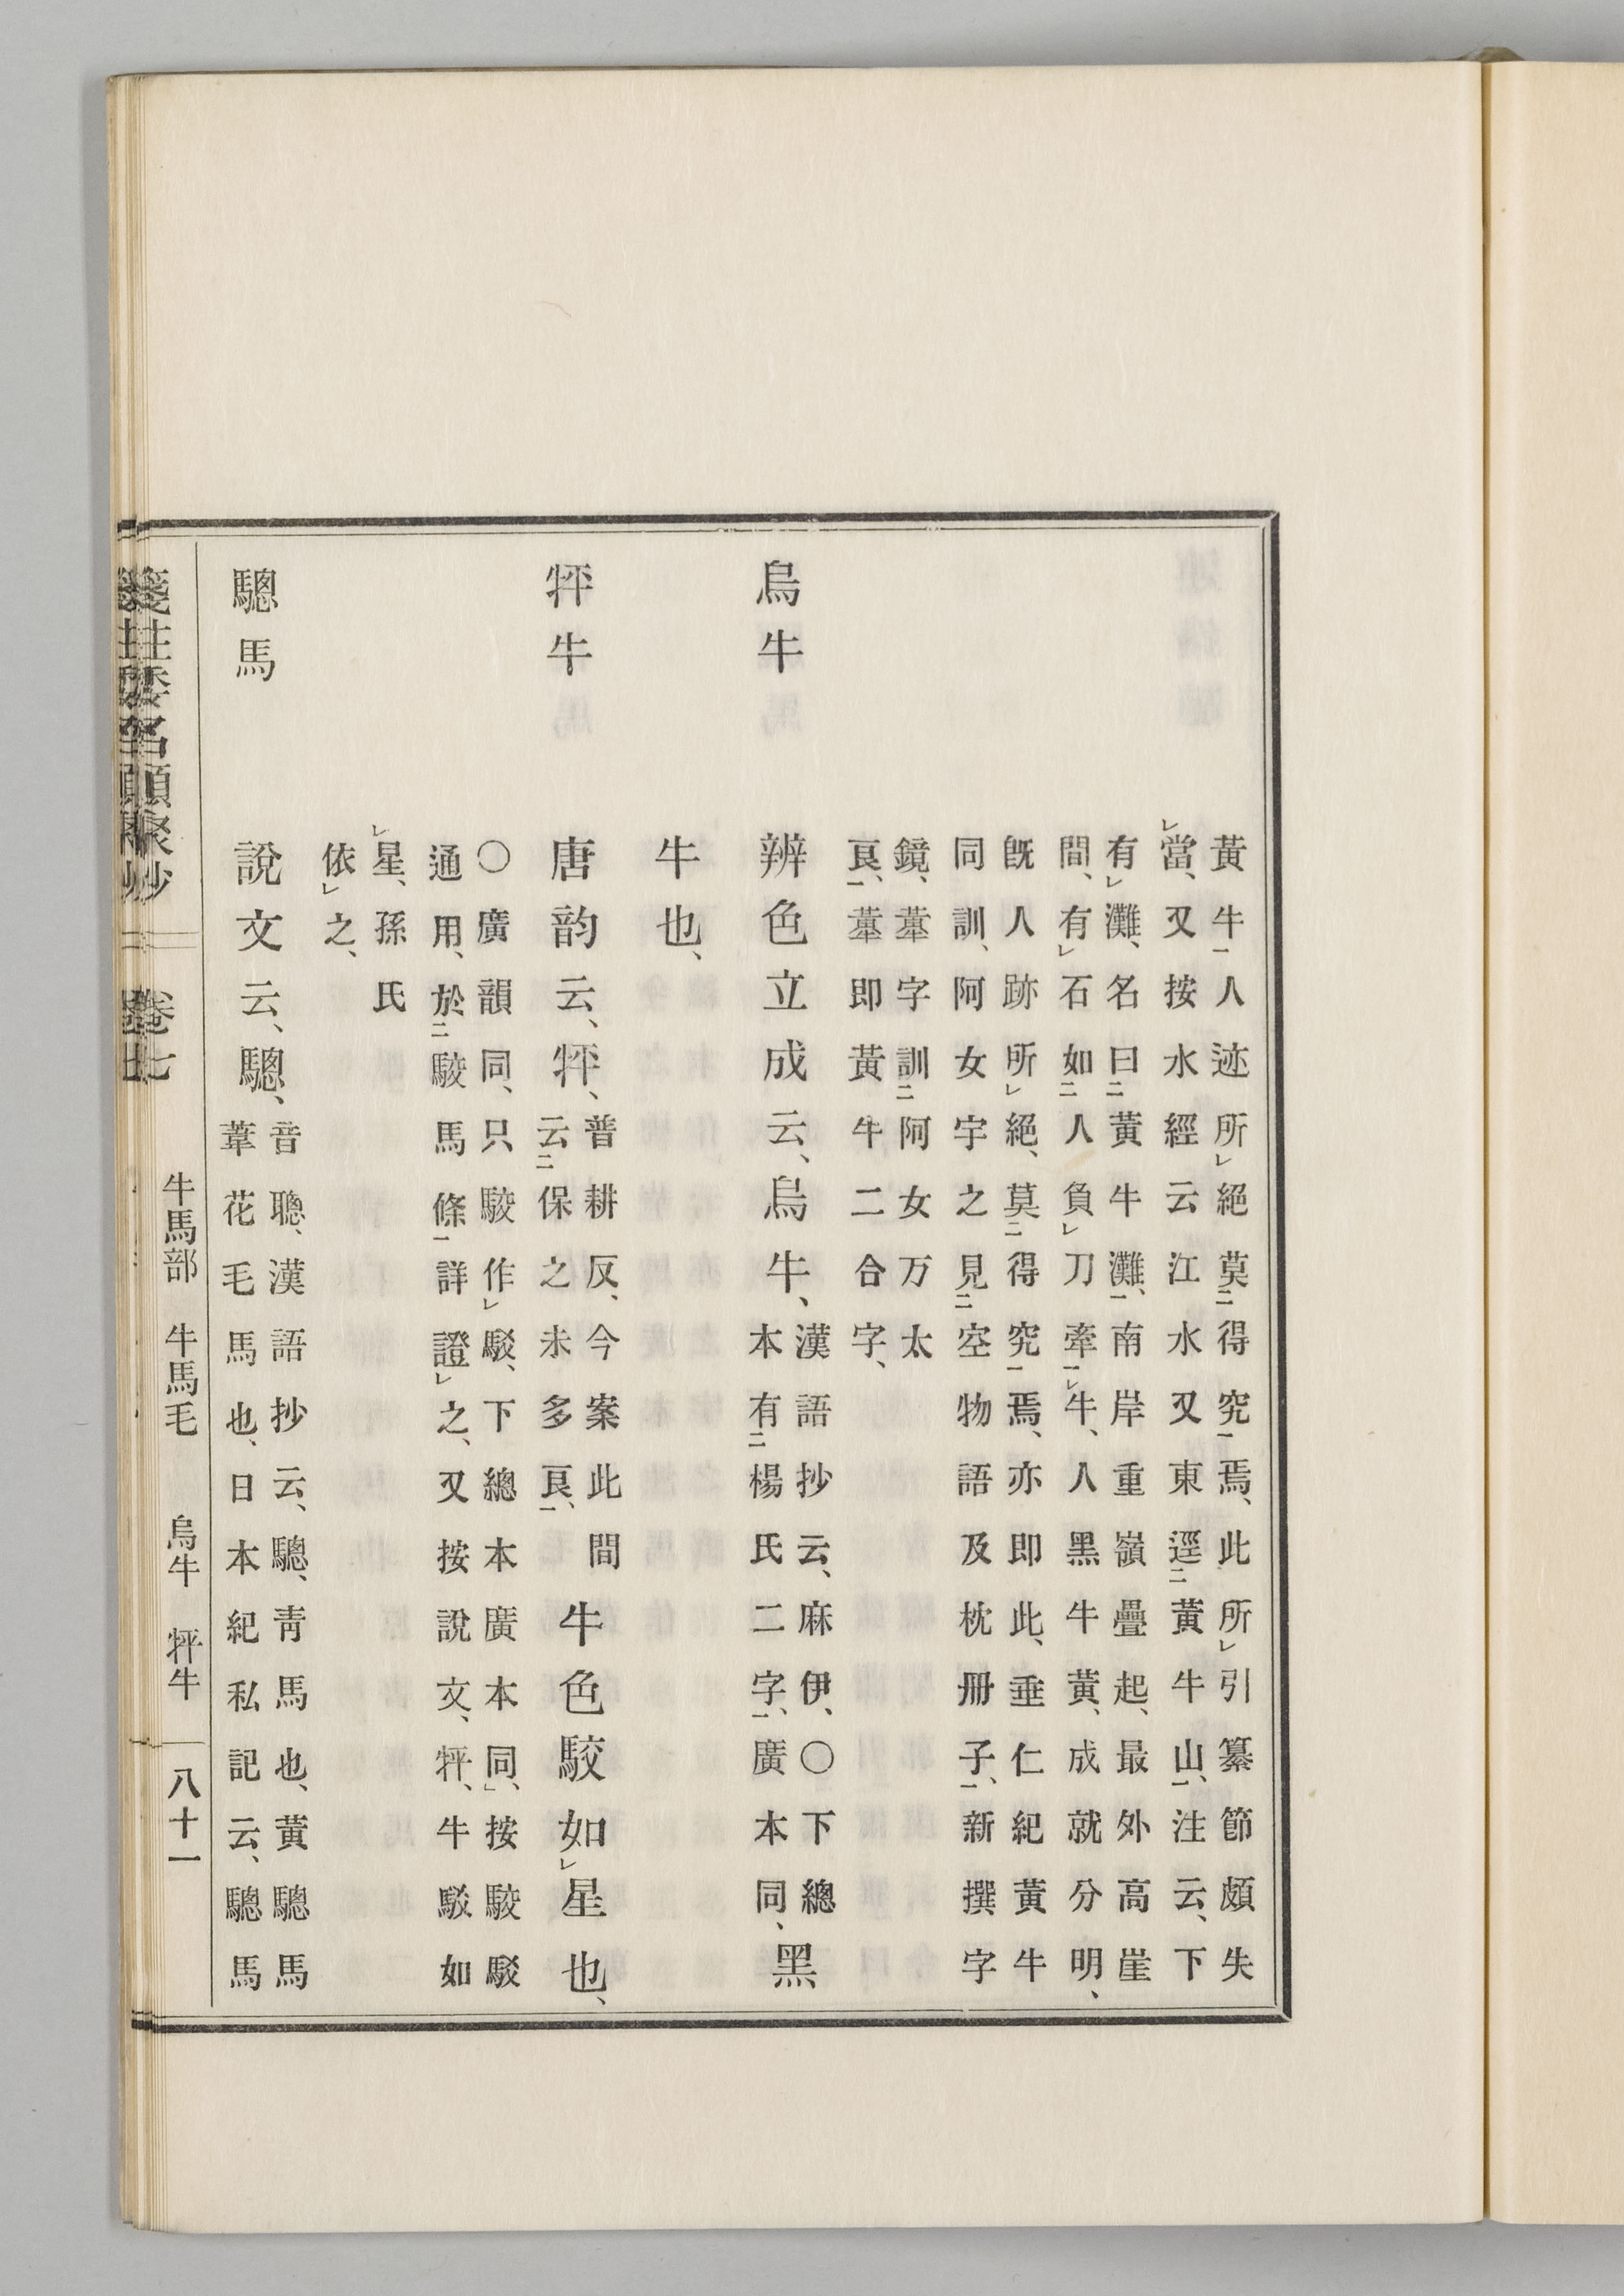 黃牛㆒人迹所㆑絕莫㆓得究㆒焉、此所㆑引纂節頗失
㆑當、又按水經云江水又東逕㆓黃牛山㆒、注云、下
有㆑灘、名曰㆓黃牛灘㆒、南岸重嶺疊起、最外高崖
間、有㆑石如㆓人負㆑刀牽㆒㆑牛、人黑牛黃、成就分明、
旣人跡所㆑絕、莫㆓得究㆒焉、亦卽此、垂仁紀黃牛
同訓、阿女宇之見㆓空物語及枕册子㆒、新撰字
鏡、𤛗字訓㆓阿女万太
良㆒、𤛗卽黃牛二合字、
烏牛
辨色立成云、烏牛、漢語抄云、麻伊、〇下總
本有㆓楊氏二字㆒、廣本同、黑
牛也、
㸬牛
唐韵云、㸬、普耕反、今案此間
云㆓保之未多良㆒、牛色駮如㆑星也、
〇廣韻同、只駮作㆑駁、下總本廣本同、按駮駁
通用、於㆓駮馬條㆒詳證㆑之、又按說文、㸬、牛駁如
㆑星、孫氏
依㆑之、
驄馬
說文云、驄、音聰、漢語抄云、驄、靑馬也、黃驄馬
葦花毛馬也、日本紀私記云、驄馬
箋注倭名類聚抄 卷七 牛馬部 牛馬毛 烏牛 㸬牛 八十一